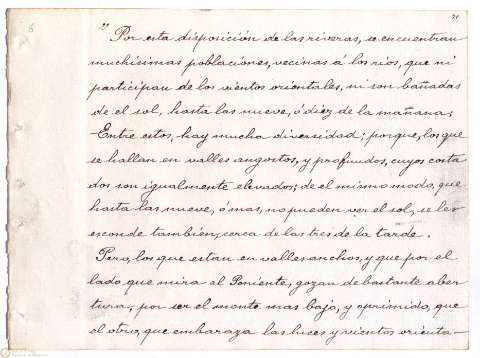 " Por esta disposición de las riveras, se encuentran
muchísimas poblaciones, vecinas á los ríos, que ni
participan de los vientos orientales, ni son bañadas
de el sol, hasta las nueve, ó diez de la mañana;
Entre estos, hay mucha diversidad; porque, los que
se hallan en valles angostos, y profundos, cuyos costa
dos son igualmente elevados; de el mismo modo, que
hasta las nueve, ó mas, no pueden ver el sol, se les
esconde tambien, cerca de las tres de la tarde.
Pero, los que estan en valles anchos, y que por el
lado, que mira al Poniente, gozan de bastante aber
tura, por ser el monte mas bajo, y oprimido, que
el otro, que embaraza las luces y vientos orienta-